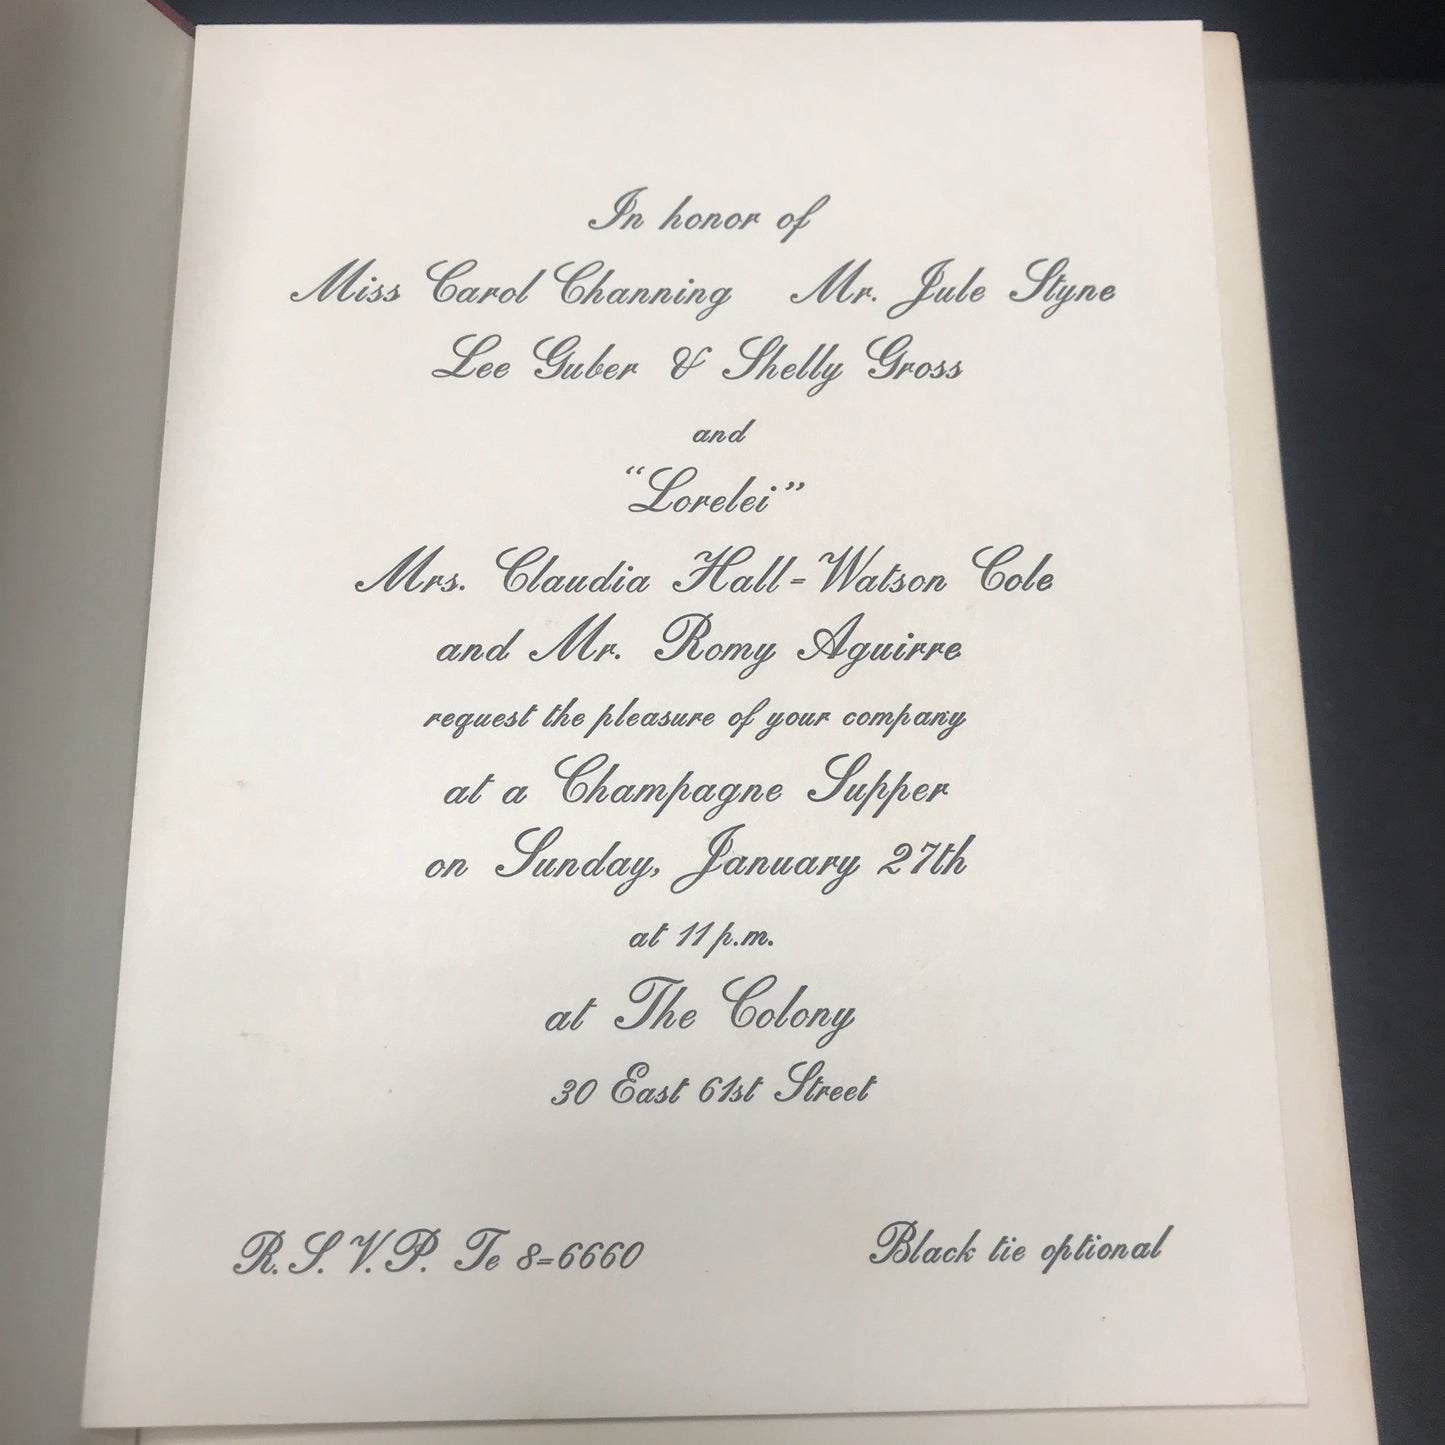 In honor of
Miss Carol Channing Mr. Jule Styne
Lee Guber & Shelly Gross
and
“Lorelei”
Mrs. Claudia Hall-Watson Cole
and Mr. Romy Aguirre
request the pleasure of your company
at a Champagne Supper
on Sunday, January 27th
at 11 p.m.
at The Colony
30 East 61st Street
R.S.V.P. Te 8-6660
Black tie optional